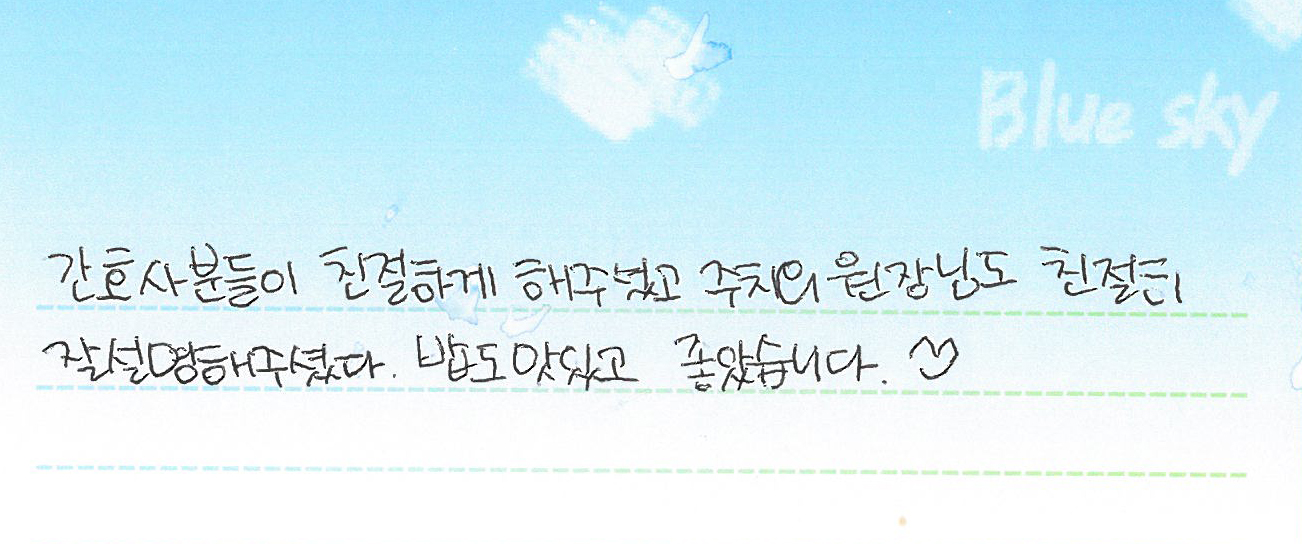 Blue sky
간호사분들이 친절하게 해주셨고 주치의 원장님도 친절히
잘설명해주셨다. 밥도맛있고 좋았습니다. ♡